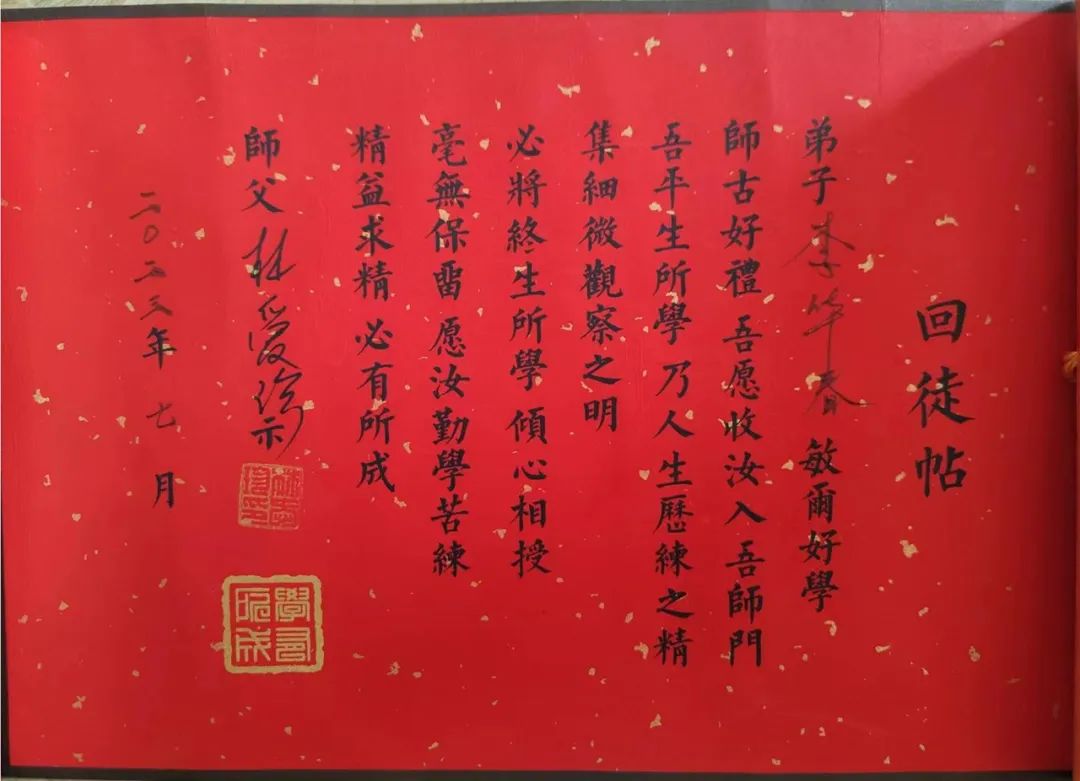 回徒帖
弟子李华春 敏爾好學
師古好禮 吾愿收汝入吾師門
吾平生所學 乃人生歷練之精
集細微觀察之明
必將終生所學 傾心相授
毫無保畱 愿汝勤學苦練
精益求精 必有所成
師父 林爱珍 示
林爱珍印
二〇二三年 七 月
學有所成